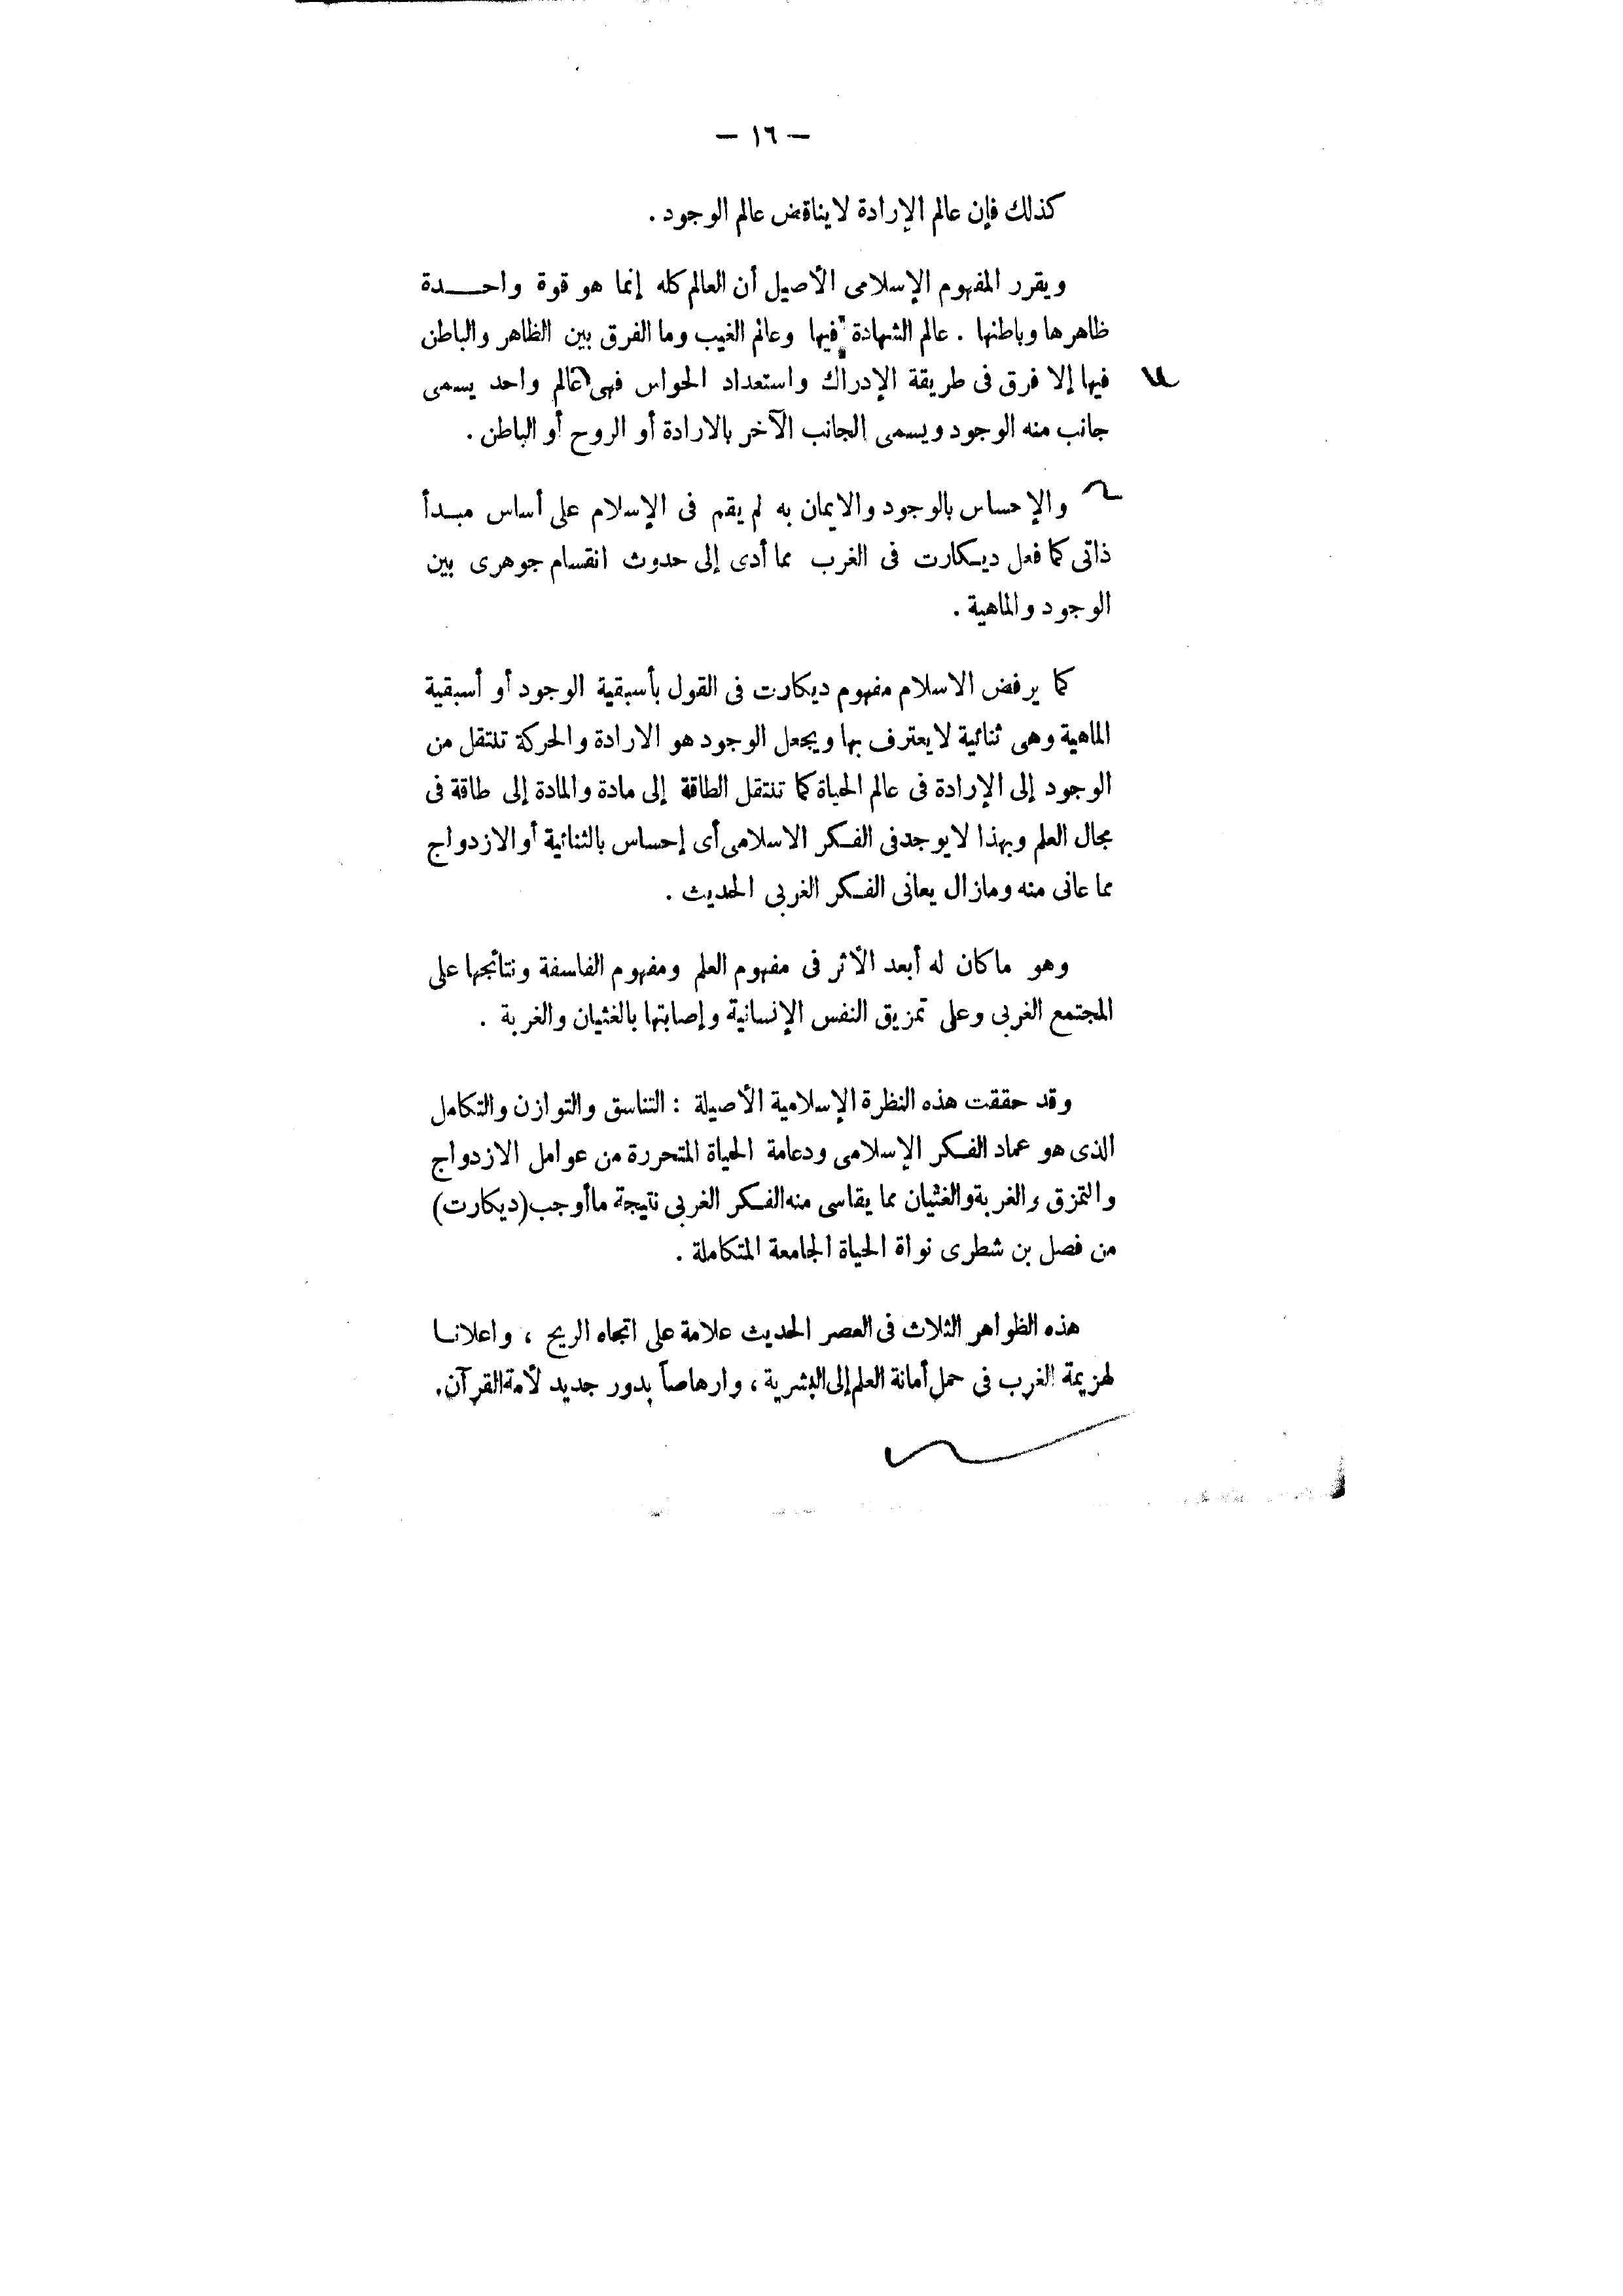 — ١٦ —
كذلك فإن عالم الإرادة لا يناقض عالم الوجود .
ويقرر المفهوم الإسلامى الأصيل أن العالم كله إنما هو قوة واحــــدة
ظاهرها وباطنها . عالم الشهادة فيها وعالم الغيب وما الفرق بين الظاهر والباطن
فيها إلا فرق فى طريقة الإدراك واستعداد الحواس فهى عالم واحد يسمى
جانب منه الوجود ويسمى الجانب الآخر بالارادة أو الروح أو الباطن .
والإحساس بالوجود والايمان به لم يقم فى الإسلام على أساس مبــدأ
ذاتى كما فعل ديـكارت فى الغرب مما أدى إلى حدوث انقسام جوهرى بين
الوجود والماهية .
كما يرفض الاسلام مفهوم ديكارت فى القول بأسبقية الوجود أو أسبقية
الماهية وهى ثنائية لا يعترف بها ويجعل الوجود هو الارادة والحركة تنتقل من
الوجود إلى الإرادة فى عالم الحياة كما تنتقل الطاقة إلى مادة والمادة إلى طاقة فى
مجال العلم وبهذا لا يوجد فى الفـكر الاسلامى أى إحساس بالثنائية أو الازدواج
مما عانى منه ومازال يعانى الفـكر الغربى الحديث .
وهو ماكان له أبعد الأثر فى مفهوم العلم ومفهوم الفاسفة ونتائجها على
المجتمع الغربى وعلى تمزيق النفس الإنسانية وإصابتها بالغثيان والغربة .
وقد حققت هذه النظرة الإسلامية الأصيلة : التناسق والتوازن والتكامل
الذى هو عماد الفـكر الإسلامى ودعامة الحياة المتحررة من عوامل الازدواج
والتمزق والغربة والغثيان مما يقاسى منه الفـكر الغربى نتيجة ما أوجب (ديكارت)
من فصل بن شطرى نواة الحياة الجامعة المتكاملة .
هذه الظواهر الثلاث فى العصر الحديث علامة على اتجاه الريح ، واعلانــا
لهزيمة الغرب فى حمل أمانة العلم إلى البشرية ، وارهاصاً بدور جديد لأمة القرآن.